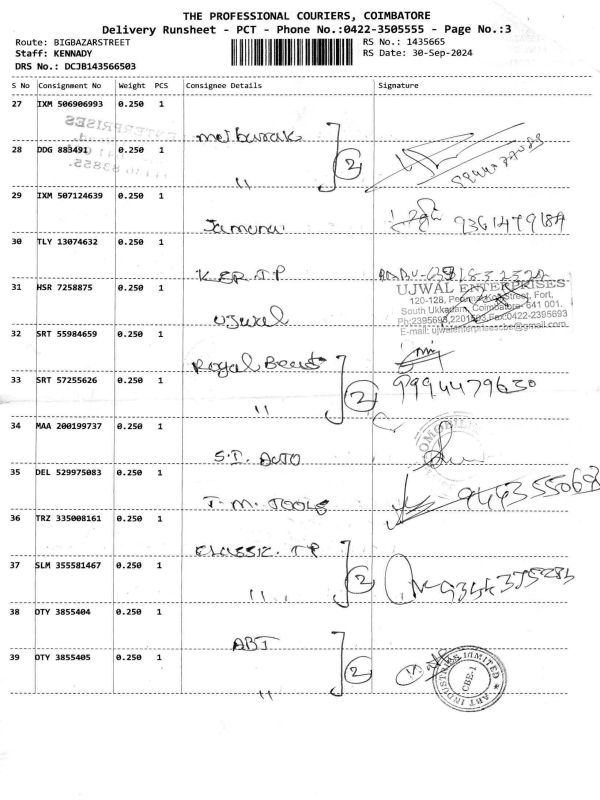 THE PROFESSIONAL COURIERS, COIMBATORE
Delivery Runsheet - PCT - Phone No.:0422-3505555 - Page No.:3
Route: BIGBAZARSTREET
Staff: KENNADY
DRS No.: DCJB143566503
RS No.: 1435665
RS Date: 30-Sep-2024
S No Consignment No Weight PCS Consignee Details Signature
27 IXM 506906993 0.250 1
28 DDG 883491 0.250 1 "
29 IXM 507124639 0.250 1 Jamuna
30 TLY 13074632 0.250 1 K.E.R. T.P
31 HSR 7258875 0.250 1 Ujwal
UJWAL ENTERPRISES
Street, Fort,
South Ukkadam, Coimbatore- 641 001.
Ph:2395693,2201593 Fax:0422-2395693
E-mail: ujwalenterprisescbe@gmail.com
32 SRT 55984659 0.250 1 Royal
33 SRT 57255626 0.250 1 " 2 9994479630
34 MAA 200199737 0.250 1 S.I. AUTO
35 DEL 529975083 0.250 1 T.M. TOOLS 9443550698
36 TRZ 335008161 0.250 1 CLASSIC. T P
37 SLM 355581467 0.250 1 " 2
38 OTY 3855404 0.250 1 ABT
39 OTY 3855405 0.250 1 " 2
ABT INDUSTRIES LIMITED
CBE-1